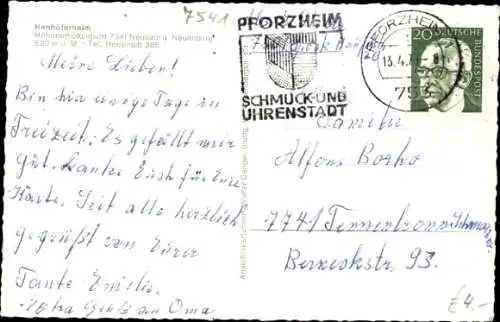 7541
Hanhöferheim
Höhenerholungsort 7541 Neusatz ü. Neuenbürg
620 m ü. M - Tel. Herrenalb 386
PFORZHEIM
SCHMUCK-UND
UHRENSTADT
PFORZHEIM
13.4.71
753
20 DEUTSCHE
BUNDESPOST
Meine Lieben!
Bin hier einige Tage zu
Freizeit. Es gefällt mir
gut. Danke Euch für Eure
Karte. Seit alle herzlich
gegrüßt von Eurer
Tante Emilie.
Extra Grüße an Oma
Familie
Alfons Borho
7741 Tennenbronn
Berneckstr. 93.
£4.-